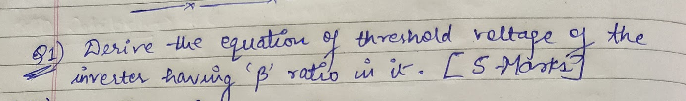 Q1) Derive the equation of threshold voltage of the
inverter having 'β' ratio in it. [5-Marks]